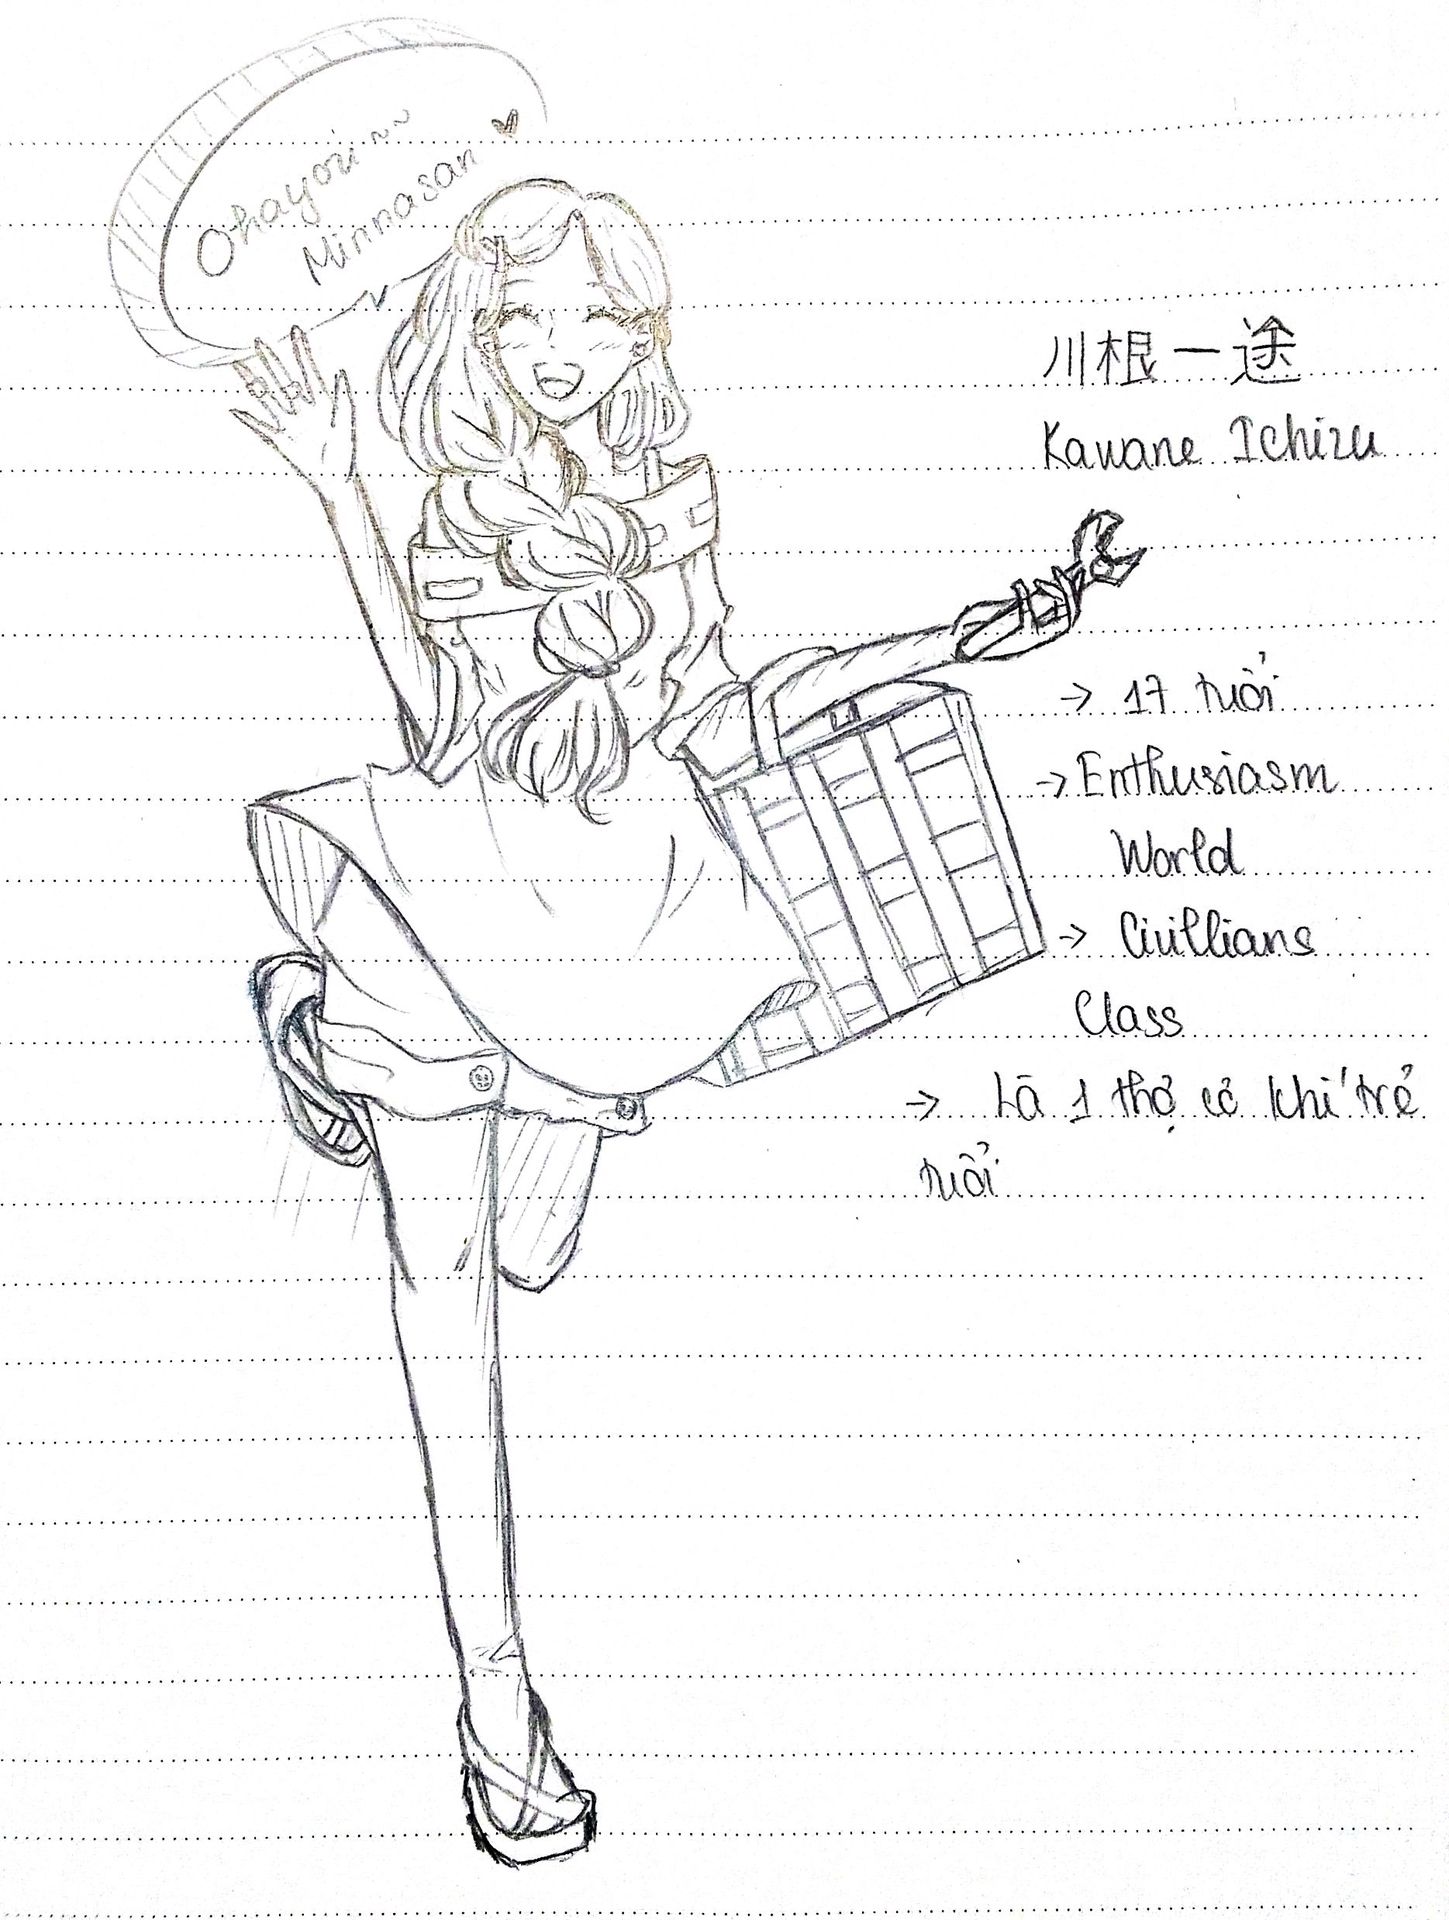 Ohayou~~
Minnasan ♥
川根一途
Kawane Ichizu
→ 17 tuổi
→ Enthusiasm
World
→ Civillians
Class
→ Là 1 thợ cơ khí trẻ
tuổi